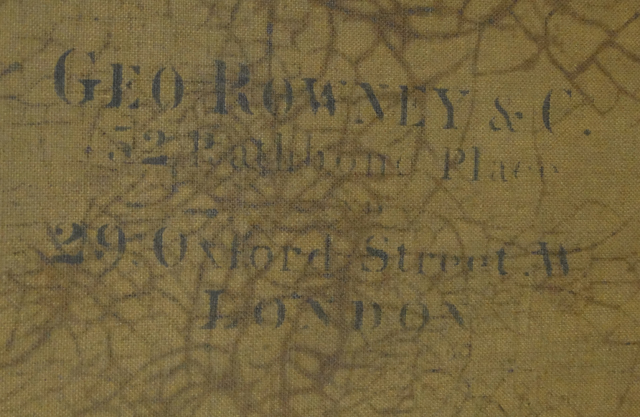 GEO ROWNEY & C.
52 Rathbone Place
29. Oxford Street. W.
LONDON